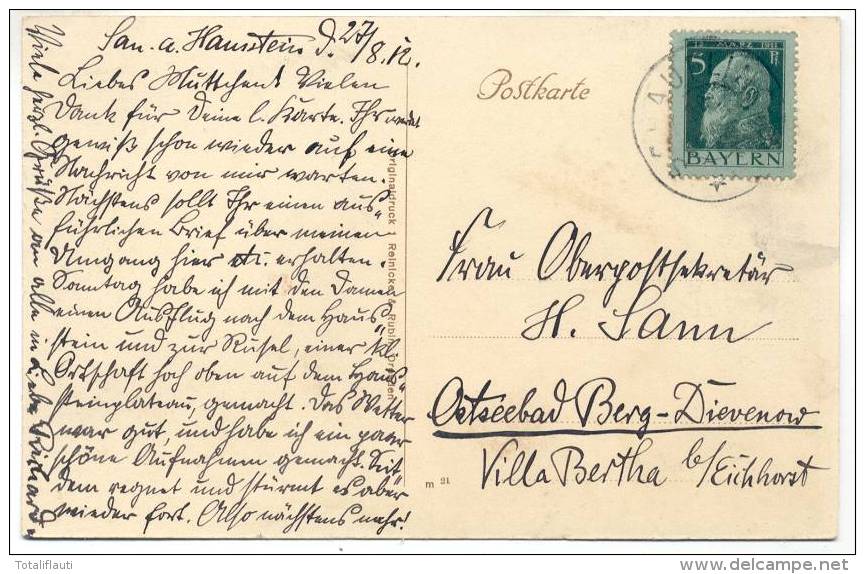 San. a. Hausstein d. 27/8.12.
Liebes Muttchen! Vielen
Dank für Deine l. Karte. Ihr werdet
gewiß schon wieder auf eine
Nachricht von mir warten.
Nächstens sollt Ihr einen aus-
führlichen Brief über meinen
Umgang hier etc. erhalten.
Sonntag habe ich mit den Damen
einen Ausflug nach dem Haus-
stein und zur Rusel, einer kl.
Ortschaft hoch oben auf dem Haus-
steinplateau, gemacht. Das Wetter
war gut, und habe ich ein paar
schöne Aufnahmen gemacht. Seit-
dem regnet und stürmt es aber
wieder fort. Also nächstens mehr!
Viele herzl. Grüße an alle in Liebe Richard
Originaldruck Reinicke & Rubin, Dresden
Postkarte
12. MÄRZ 1911
5 Pf
BAYERN
Frau Oberpostsekretär
H. Sann
Ostseebad Berg-Dievenow
Villa Bertha b/Eichhorst
m 21
Totaliflauti
delcampe.net